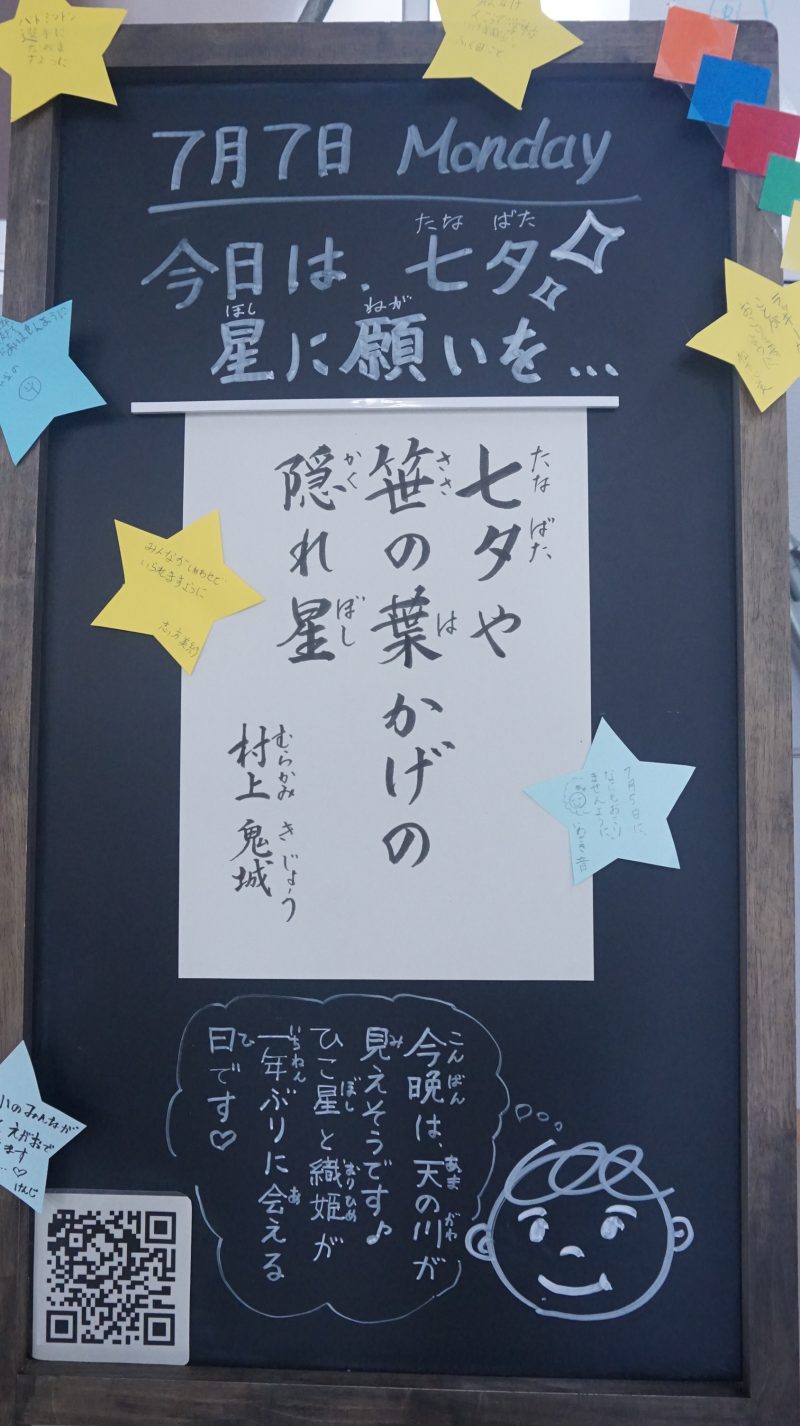 7月7日 Monday
今日は、七夕
たな ばた
星に願いを…
ほし ねが
七夕や
たな ばた
笹の葉かげの
ささ は
隠れ星
かく ぼし
村上 鬼城
むらかみ き じょう
バドミントン
選手に
なれま
すように
みんながしあわせで
いられますように
7月5日に、
なにもおこり
ませんように
のみんなが
えがおで
ます
…♡
けんじ
今晩は、天の川が
こんばん あま がわ
見えそうです♪
み
ひこ星と織姫が
ぼし おりひめ
一年ぶりに会える
いちねん あ
日です♡
ひ